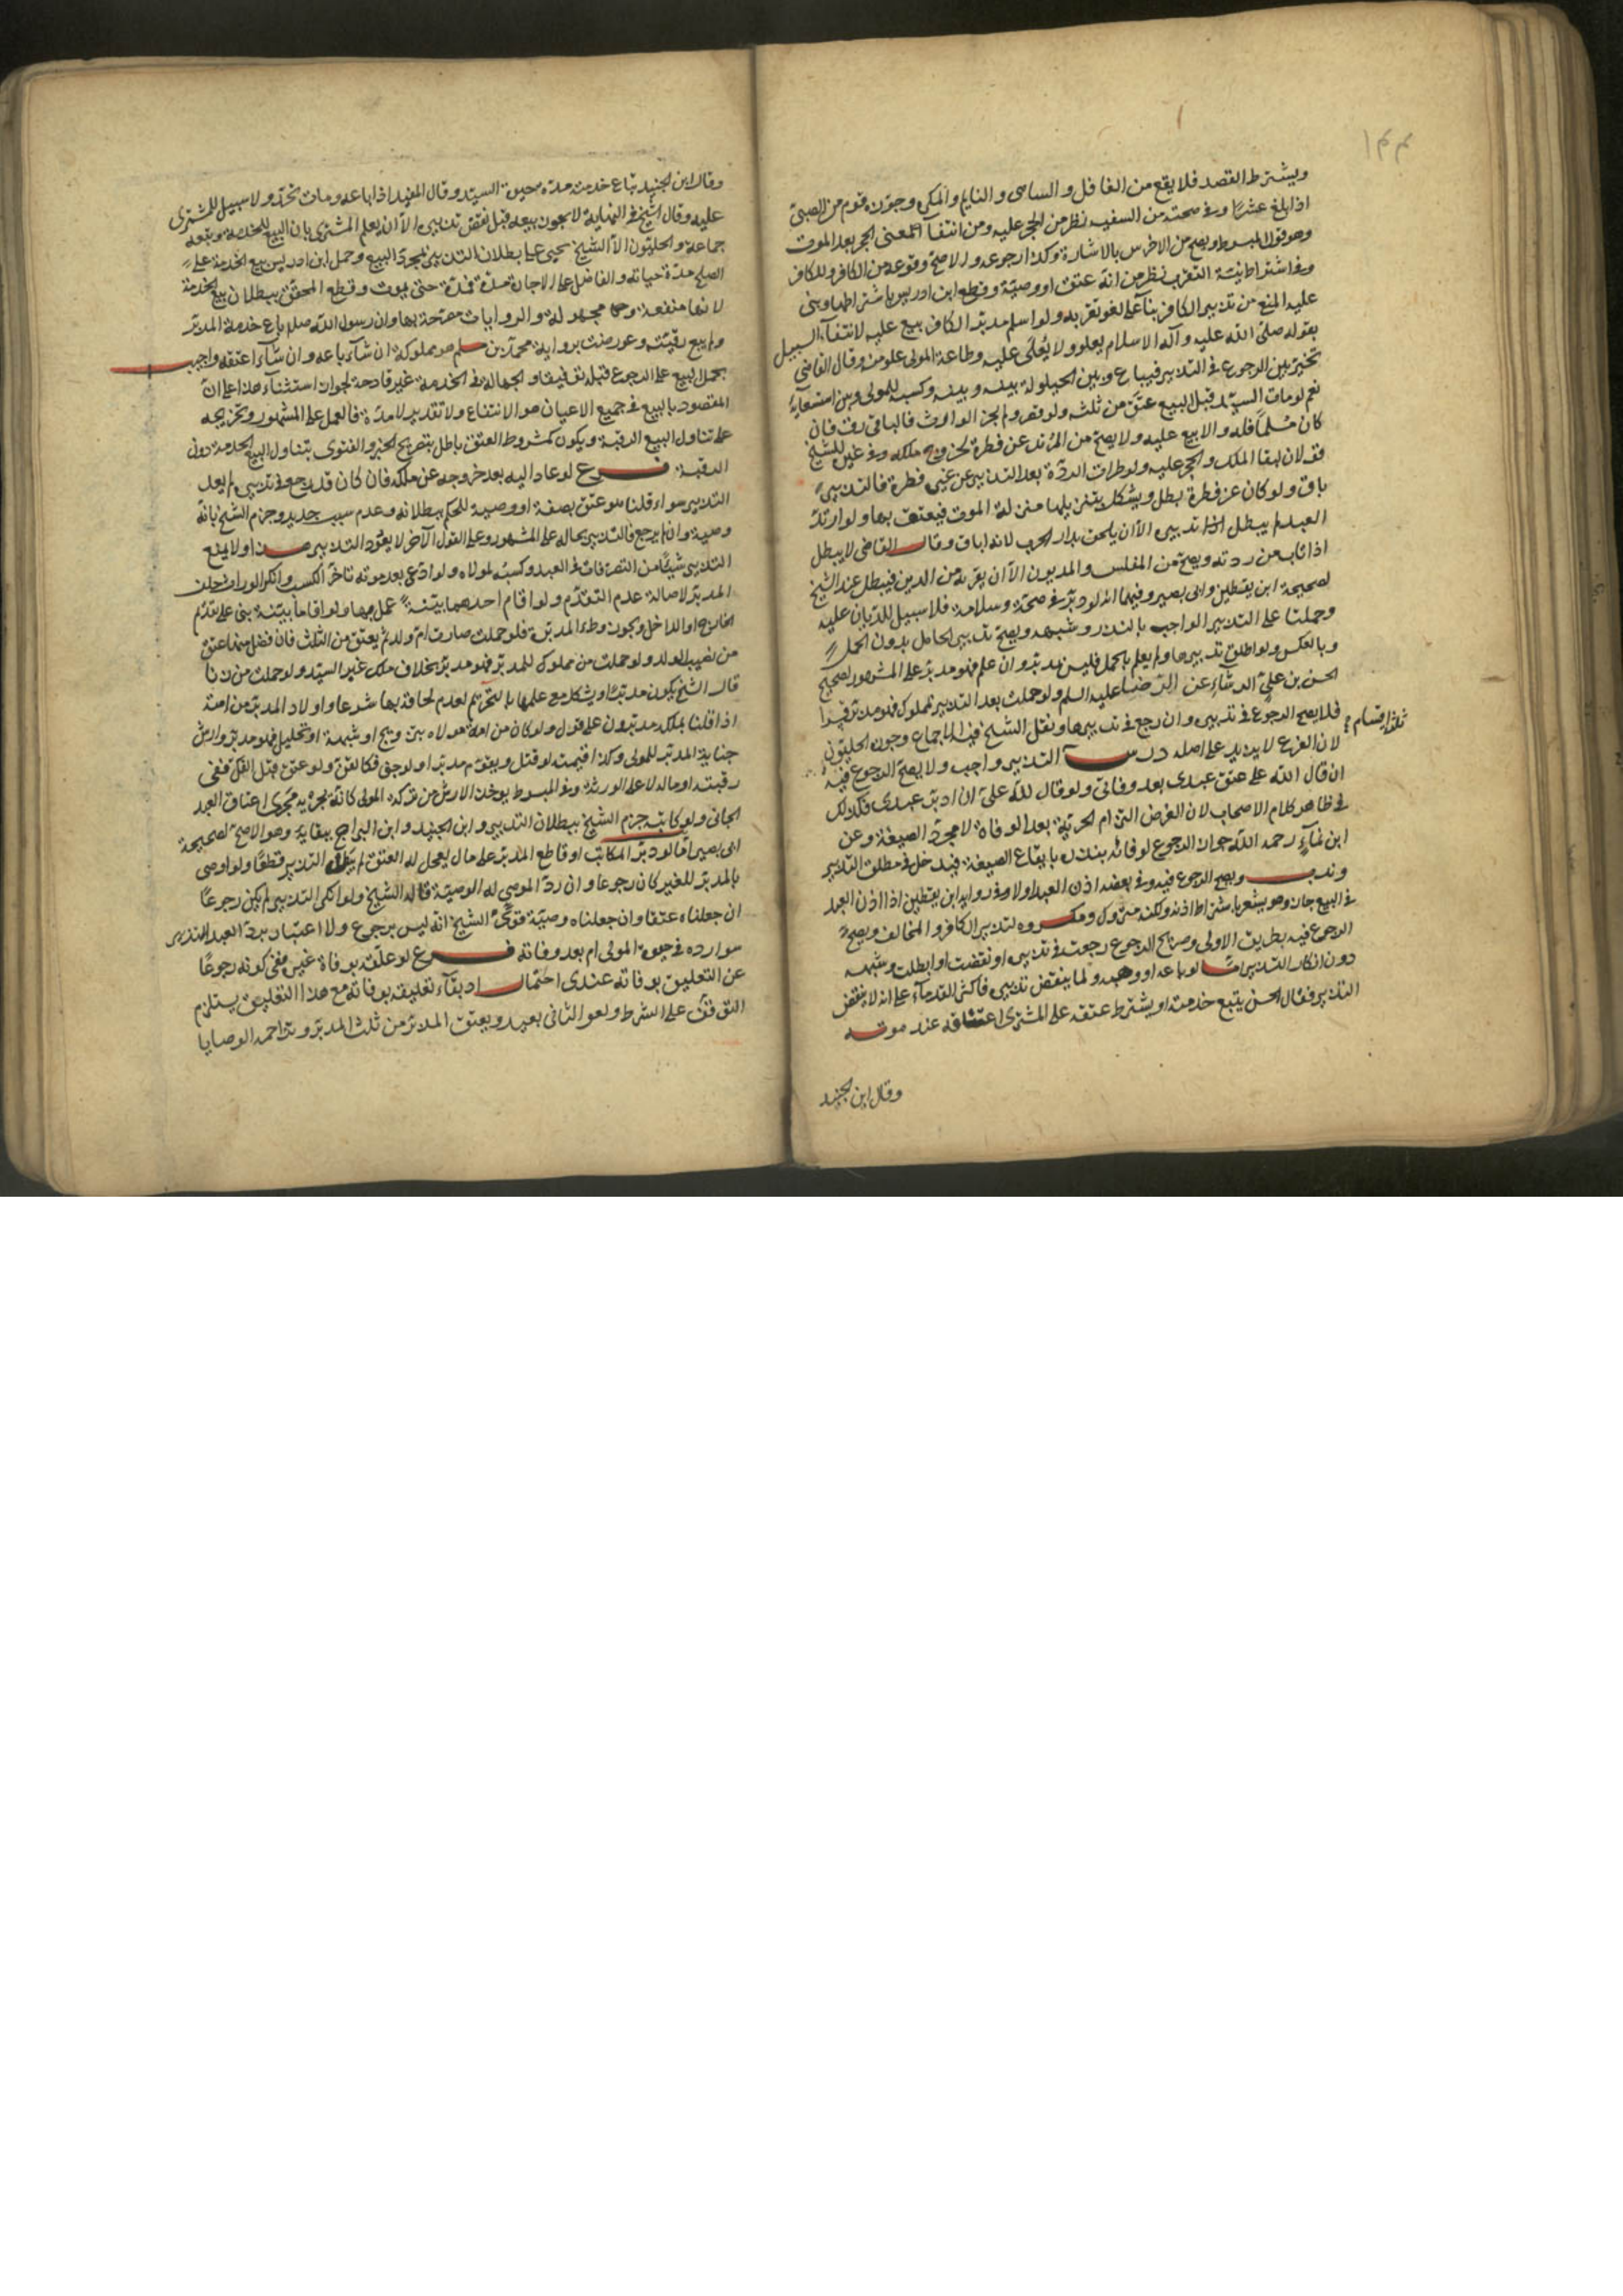 ويشترط القصد فلا يقع من الغافل والساهى والنايم والمكره وجوزه قوم من الصبى
اذا بلغ عشرا وفى صحته من السفيه نظر من الحجر عليه ومن انتفاء معنى الحجر بعد الموت
وهو قول المبسوط ويصح من الاخرس بالاشارة وكذا رجوعه والاصح وقوعه من الكافر وللكافر
وفى اشتراط نية التقرب نظر من انه عتق او وصية وقطع ابن ادريس باشتراطها وبنى
عليه المنع من تدبير الكافر بناء على لغو تقربه ولو اسلم مدبر الكافر بيع عليه لانتفاء السبيل
بقوله صلى الله عليه وآله الاسلام يعلو ولا يعلى عليه وطاعة المولى علو منه وقال القاضى
تخير بين الرجوع فى التدبير فيباع وبين الحيلولة بينه وبينه وكسبه للمولى وبين استسعائه
نعم لو مات السيد قبل البيع عتق من ثلثه ولو قصر ولم يجز الوارث فالباقى رق فان
كان مسلما فله والا بيع عليه ولا يصح من المرتد عن فطرة لخروج ملكه وفى غيره للشيخ
قولان لبقا الملك والحجر عليه ولو طرات الردة بعد التدبير عن غير فطرة فالتدبير
باق ولو كان عن فطرة بطل ويشكل بتنزيلها منزلة الموت فيعتق بها ولو ارتد
العبد لم يبطل تدبيره الا ان يلحق بدار الحرب لانه اباق وقال القاضى لا يبطل
اذا تاب من ردته ويصح من المفلس والمديون الا ان يفر به من الدين فيبطل عند الشيخ
لصحيحة ابن يقطين وابى بصير وفيهما انه لو دبر فى صحة وسلامة فلا سبيل للديان عليه
وحملتا على التدبير الواجب بالنذر وشبهه ويصح تدبير الحامل بدون الحمل
وبالعكس ولو اطلق تدبيرها ولم يعلم بالحمل فليس بمدبر وان علم فهو مدبر على المشهور لصحيح
الحسن بن على الوشاء عن الرضا عليه السلم ولو حملت بعد التدبير بمملوك فهو مدبر قهرا
فلا يصح الرجوع فى تدبيره وان رجع فى تدبيرها ونقل الشيخ فيه الاجماع وجوزه الحليون
لان الفرع لا يزيد على اصله درس التدبير واجب ولا يصح الرجوع فيه
ثلثه اقسام
ان قال لله على عتق عبدى بعد وفاتى ولو قال لله على ان ادبر عبدى فكذلك
فى ظاهر كلام الاصحاب لان الغرض التزام الحرية بعد الوفاة لا مجرد الصيغة وعن
ابن نماء رحمه الله جواز الرجوع لوفائه بنذره بايقاع الصيغة فيدخل فى مطلق التدبير
وندب ويصح الرجوع فيه وفى بعضه اذن العبد او لا وفى رواية ابن يقطين اذا اذن العبد
فى البيع جاز وهو يشعر باشتراط اذنه ولكنه متروك ومكروه لتدبير الكافر والمخالف ويصح
الرجوع فيه بطريق الاولى وصريح الرجوع رجعت فى تدبيره او نقضت او ابطلت وشبهه
دون انكار التدبير امّا لو باعه او وهبه ولما ينقض تدبيره فاكثر القدماء على انه لا ينقض
التدبير فقال الحسن يبيع خدمته او يشترط عتقه على المشترى اعتاقه عند موته
وقال ابن الجنيد
وقال ابن الجنيد يباع خدمته مدة حيوة السيد وقال المفيد اذا باعه ومات تحرر ولا سبيل للمشترى
عليه وقال الشيخ فى النهاية لا يجوز بيعه قبل نقض تدبيره الا ان يعلم المشترى بان البيع للخدمة وتبعه
جماعة والحليون الا الشيخ يحيى على بطلان التدبير بمجرد البيع وحمل ابن ادريس بيع الخدمة على
الصلح مدة حياته والفاضل على الاجارة مدة فمدة حتى يموت وقطع المحقق ببطلان بيع الخدمة
لانها منفعة مجهولة والروايات مصرحة بها وان رسول الله صلم باع خدمة المدبر
ولم يبع رقبته وعورضت برواية محمد بن مسلم هو مملوكه ان شاء باعه وان شاء اعتقه واجيب
بحمل البيع على الرجوع قبله توفيقا والجهالة فى الخدمة غير قادحة لجواز استثناء هذا على ان
المقصود بالبيع فى جميع الاعيان هو الانتفاع ولا تقدير لامده فالعمل على المشهور وتخريجه
على تناول البيع الرقبة ويكون كمشروط العتق باطل بتصريح الخبر والفتوى بتناول البيع الخدمة دون
الرقبة فرع لو عاد اليه بعد خروجه عن ملكه فان كان قد رجع فى تدبيره لم يعد
التدبير سواء قلنا هو عتق بصفة او وصية للحكم ببطلانه وعدم سبب جديد وجزم الشيخ بانه
وصية وان لم يرجع فالتدبير بحاله على المشهور وعلى القول الآخر لا يعود التدبير ولا يمنع
التدبير شيئا من التصرفات فى العبد وكسبه لمولاه ولو ادعى بعد موته تاخر الكسب وانكر الوارث حلف
المدبر لاصالة عدم التقدم ولو اقام احدهما بينة عمل بها ولو اقاما بينة بنى على تقدم
الخارج او الداخل ويجوز وطء المدبرة فلو حملت صارت ام ولد ثم يعتق من الثلث فان فضل منها عتق
من نصيب الولد ولو حملت من مملوك للمدبر فهو مدبر بخلاف ملك غير السيد ولو حملت من زنا
قال الشيخ يكون مدبرا ويشكل مع علمها بالتحريم لعدم لحاقه بها شرعا واولاد المدبر من امته
اذا قلنا بملكه مدبرون على قول ولو كان من امة مولاه بتزويج او شبهة او تحليل فهو مدبر وارش
جناية المدبر للمولى وكذا قيمته لو قتل ويقوم مدبرا ولو جنى فكالقن ولو عتق قبل الفك ففى
رقبته او ماله لا على الورثة وفى المبسوط يوخذ الارش من تركة المولى كانه يجريه مجرى اعتاق العبد
الجانى ولو كاتبه جزم الشيخ ببطلان التدبير وابن الجنيد وابن البراج ببقايه وهو الاصح لصحيحة
ابى بصير اما لو دبر المكاتب او قاطع المدبر على مال ليعجل له العتق لم يبطل التدبير قطعا ولو اوصى
بالمدبر للغير كان رجوعا وان رد الموصى له الوصية قاله الشيخ ولو انكر التدبير لم يكن رجوعا
ان جعلناه عتقا وان جعلناه وصية قوى الشيخ انه ليس برجوع ولا اعتبار برد العبد التدبير
سوا رده فى حيوة المولى ام بعد وفاته فرع لو علقه بوفاة غيره ففى كونه رجوعا
عن التعليق بوفاته عندى احتمال اذ بقاء تعليقه بوفاته مع هذا التعليق يستلزم
التوقف على الشرط ولغو الثانى بعيد ويعتق المدبر من ثلث المدبر وتزاحمه الوصايا